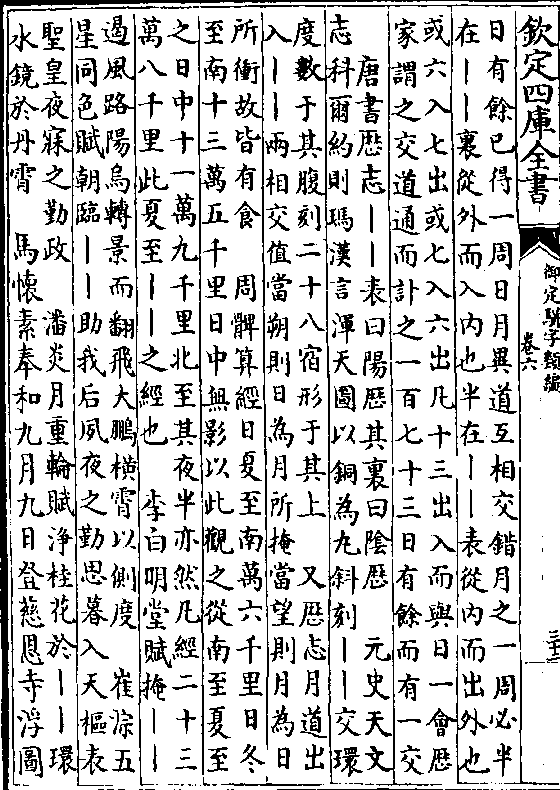 欽定四庫全書
御定駢字類編
卷六
三十二
日有餘已得一周日月異道互相交錯月之一周必半
在丨丨裏從外而入内也半在丨丨表從内而出外也
或六入七出或七入六出凡十三出入而與日一會歴
家謂之交道通而計之一百七十三日有餘而有一交
唐書歴志丨丨表曰陽歴其裏曰隂歴　元史天文
志科爾約則瑪漢言渾天圖以銅為丸斜刻丨丨交環
度數于其腹刻二十八宿形于其上　又歴志月道出
入丨丨兩相交值當朔則日為月所掩當望則月為日
所衝故皆有食　周髀算經日夏至南萬六千里日冬
至南十三萬五千里日中無影以此觀之從南至夏至
之日中十一萬九千里北至其夜半亦然凡經二十三
萬八千里此夏至丨丨之經也　李白明堂賦掩丨丨
遏風路陽烏轉景而翻飛大鵬横霄以側度　崔淙五
星同色賦朝臨丨丨助我后夙夜之勤思暮入天樞表
聖皇夜寐之勤政　潘炎月重輪賦淨桂花於丨丨環
水鏡於丹霄　馬懷素奉和九月九日登慈恩寺浮圖